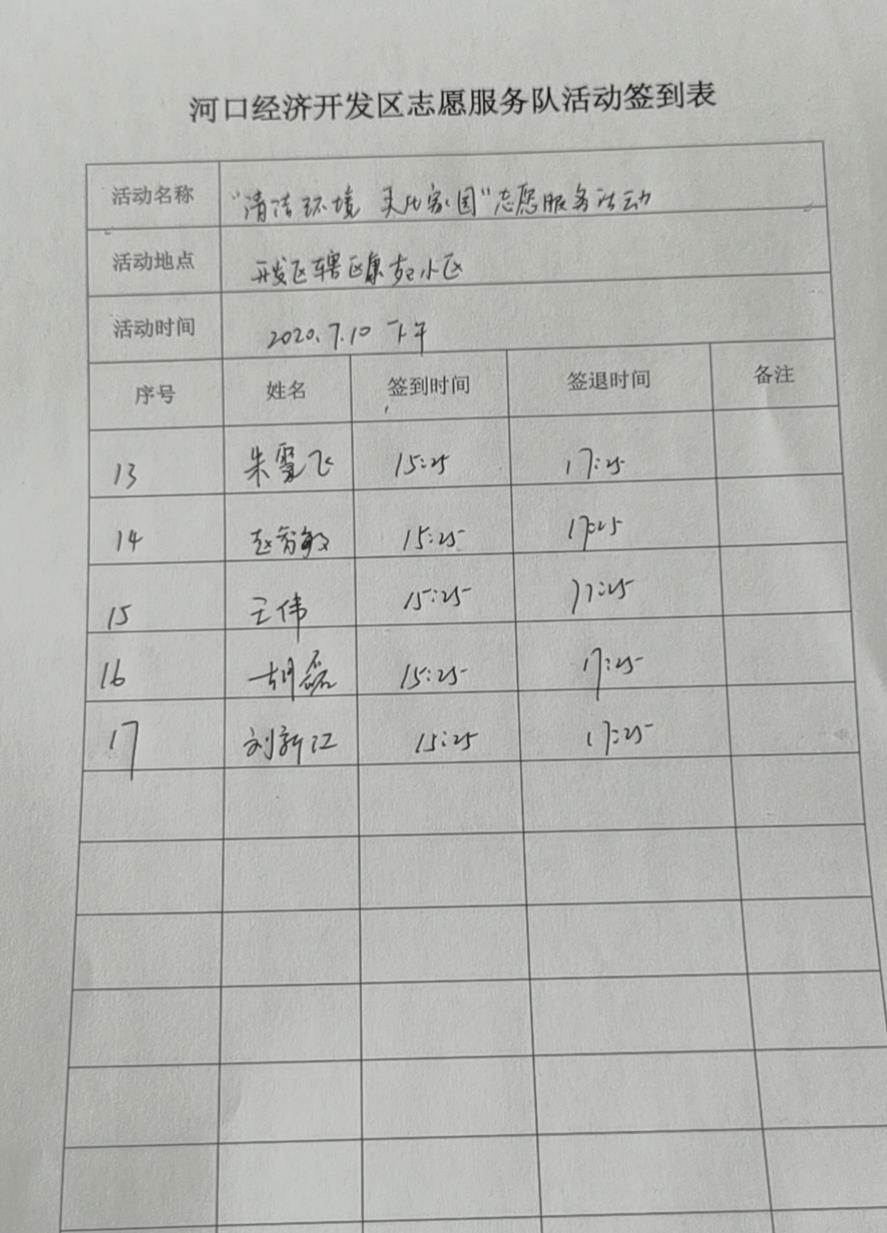 河口经济开发区志愿服务队活动签到表
活动名称 “清洁环境 美化家园”志愿服务活动
活动地点 开发区辖区康 小区
活动时间 2020.7.10 下午
序号 姓名 签到时间 签退时间 备注
13 朱雪飞 15:25 17:25
14 赵 敏 15:25 17:25
15 王伟 15:25 17:25
16 胡磊 15:25 17:25
17 刘新江 15:25 17:25